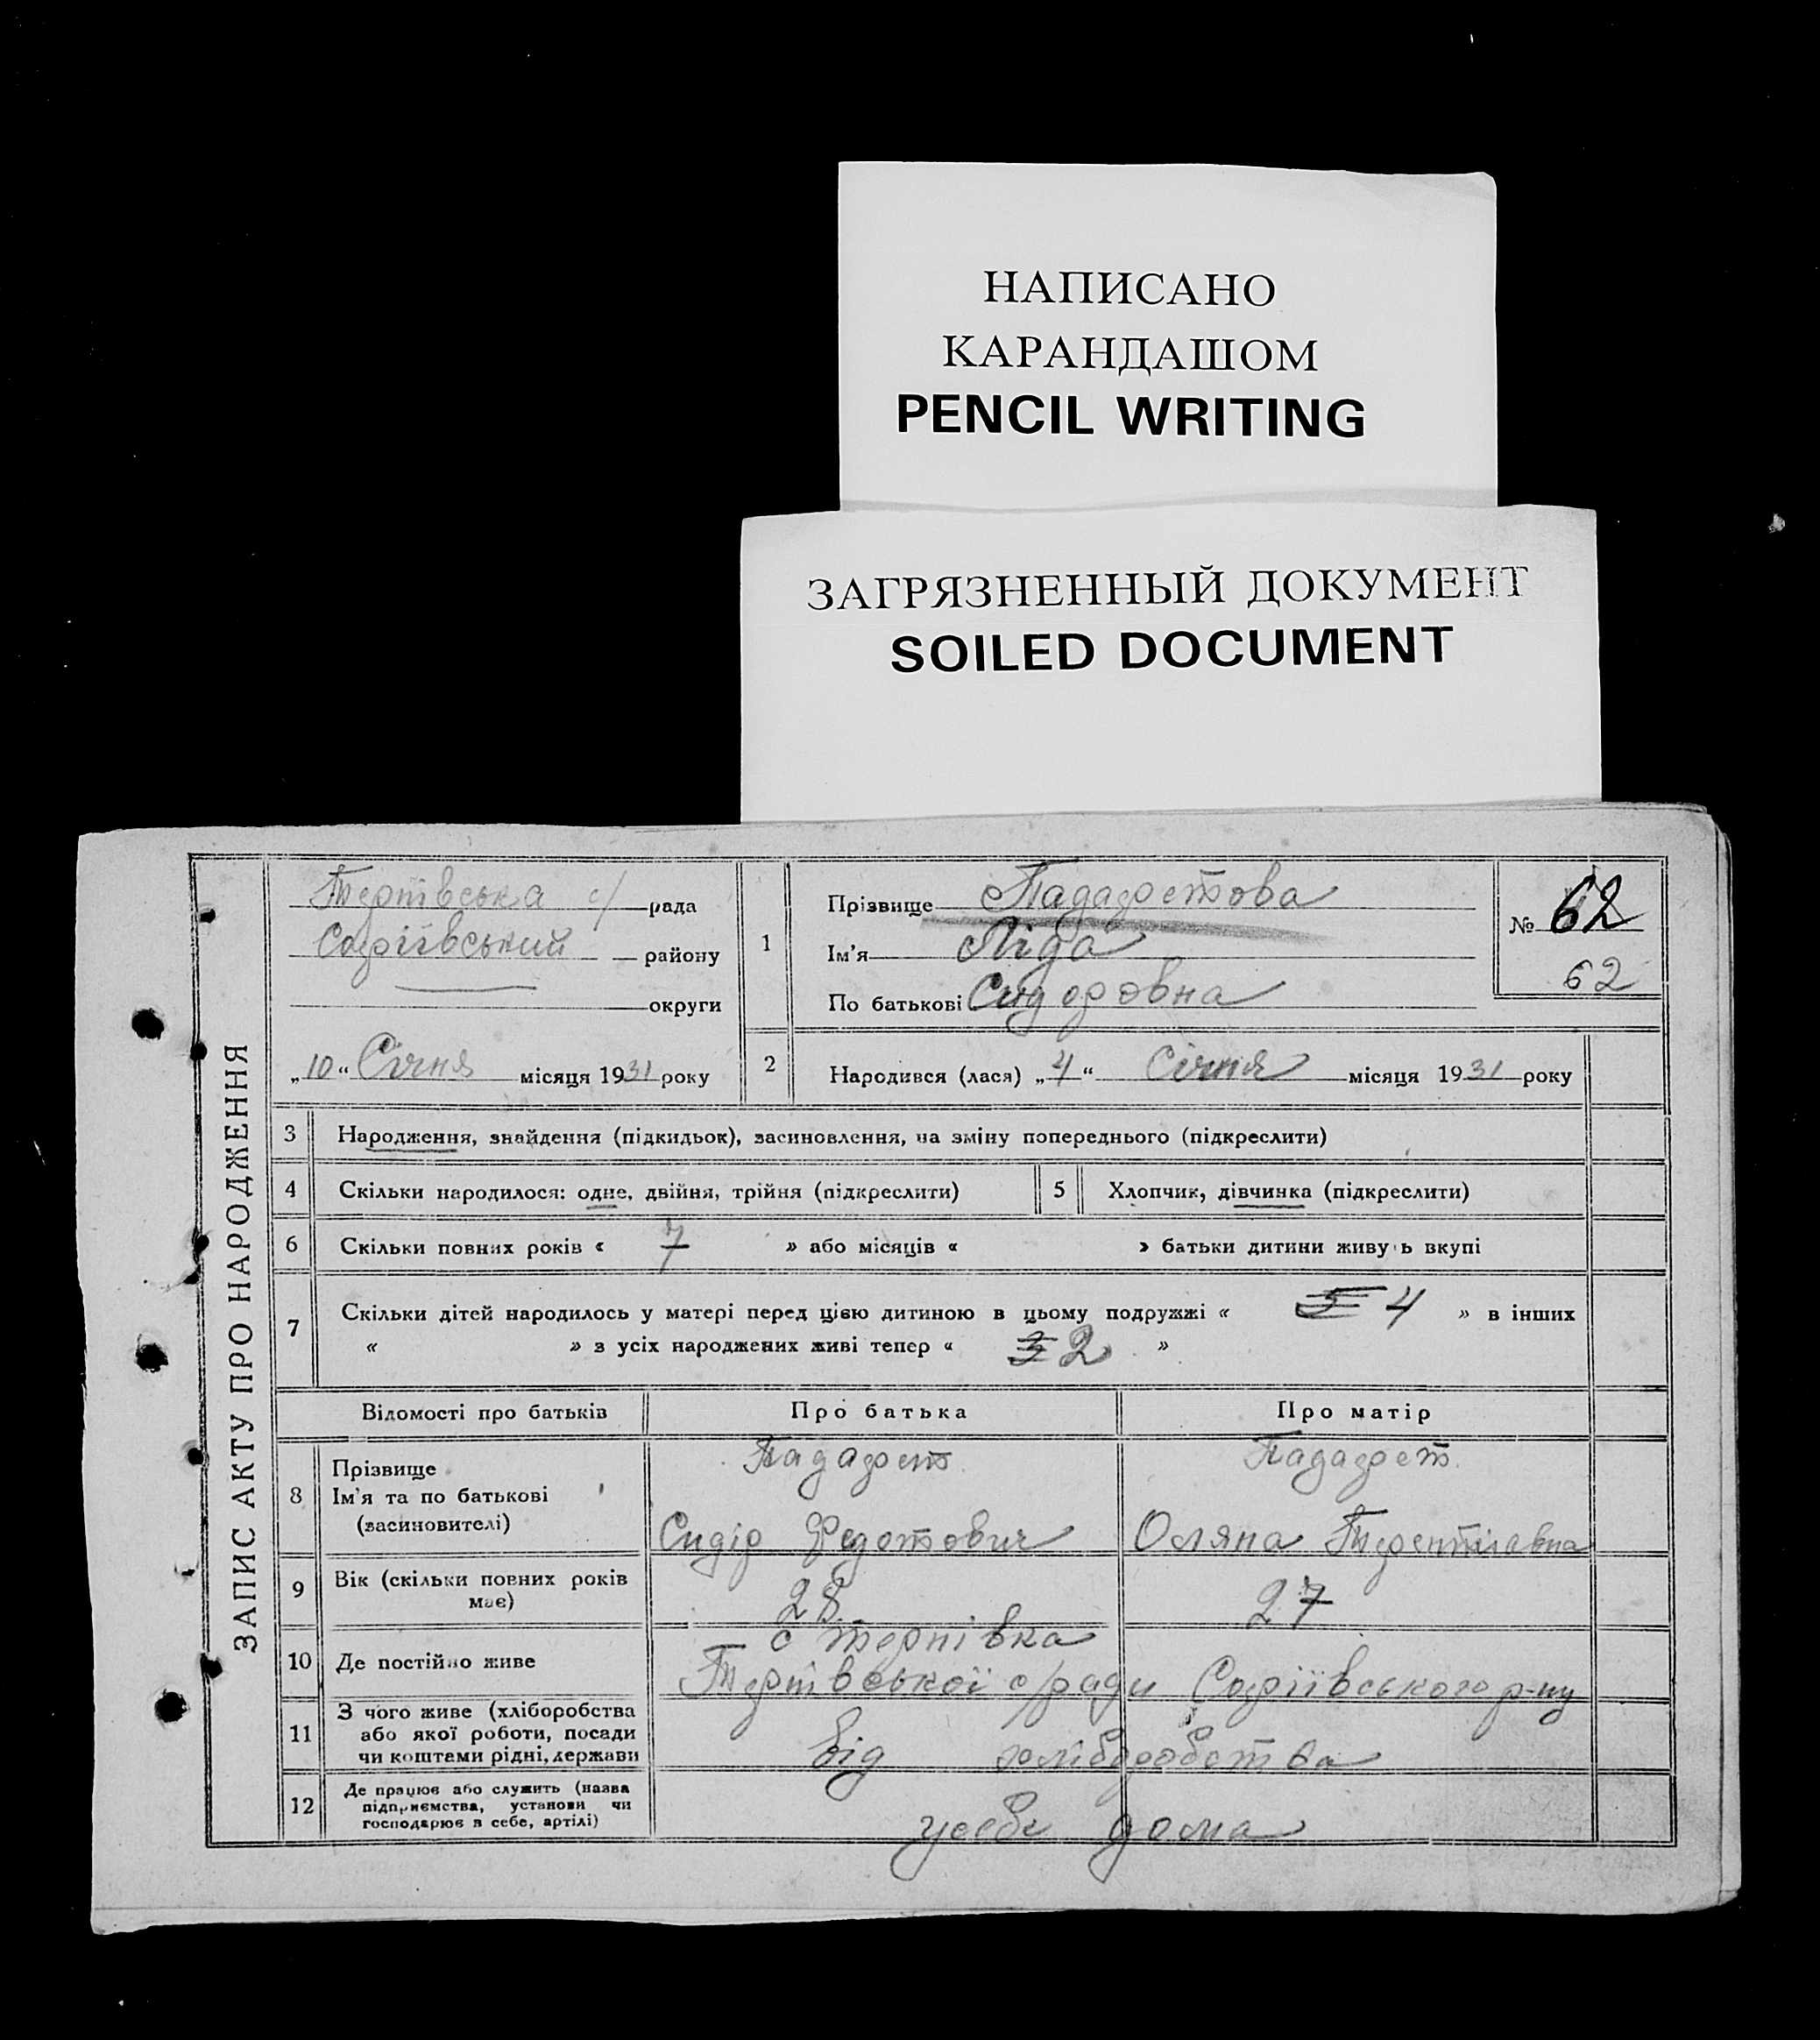 НАПИСАНО
КАРАНДАШОМ
PENCIL WRITING
ЗАГРЯЗНЕННЫЙ ДОКУМЕНТ
SOILED DOCUMENT
ЗАПИС АКТУ ПРО НАРОДЖЕННЯ
с/ рада
Софіївський району
округи
„10“ Січня місяця 1931 року
1
Прізвище
Ім'я Ліда
По батькові Сидоровна
№ 62
62
2 Народився (лася) „4“ Січня місяця 1931 року
3 Народження, знайдення (підкидьок), засиновлення, на зміну попереднього (підкреслити)
4 Скільки народилося: одне, двійня, трійня (підкреслити)
5 Хлопчик, дівчинка (підкреслити)
6 Скільки повних років « 7 » або місяців « » батьки дитини живуть вкупі
7 Скільки дітей народилось у матері перед цією дитиною в цьому подружжі « 5 4 » в інших
« » з усіх народжених живі тепер « 3 2 »
Відомості про батьків Про батька Про матір
8 Прізвище
Ім'я та по батькові
(засиновителі)
Сидір Федотович Оляна Терентіївна
9 Вік (скільки повних років
має) 28 27
10 Де постійно живе
с Тернівка
с/ради Софіївського р-ну
11 З чого живе (хліборобства
або якої роботи, посади
чи коштами рідні, держави
від хліборобства
12 Де працює або служить (назва
підприємства, установи чи
господарює в себе, артілі)
усебе дома